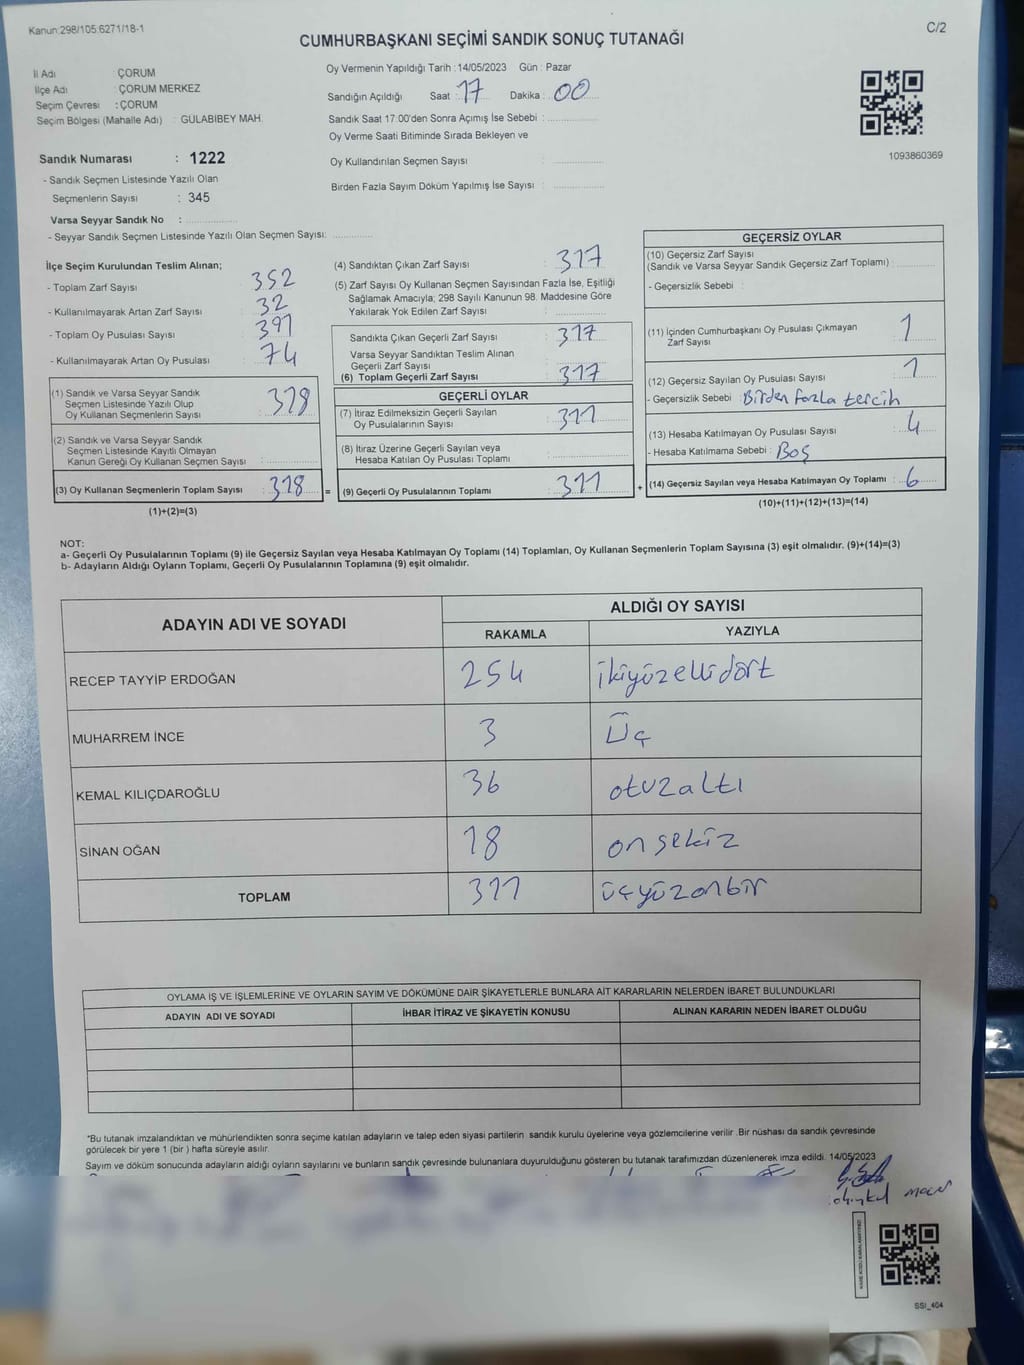 Kanun:298/105:6271/18-1
C/2
CUMHURBAŞKANI SEÇİMİ SANDIK SONUÇ TUTANAĞI
İl Adı : ÇORUM
İlçe Adı : ÇORUM MERKEZ
Seçim Çevresi : ÇORUM
Seçim Bölgesi (Mahalle Adı) : GÜLABİBEY MAH.
Oy Vermenin Yapıldığı Tarih : 14/05/2023 Gün : Pazar
Sandığın Açıldığı Saat : 17 Dakika : 00
Sandık Saat 17:00'den Sonra Açımış İse Sebebi :
Oy Verme Saati Bitiminde Sırada Bekleyen ve
Oy Kullandırılan Seçmen Sayısı :
Birden Fazla Sayım Döküm Yapılmış İse Sayısı :
1093860369
Sandık Numarası : 1222
- Sandık Seçmen Listesinde Yazılı Olan
Seçmenlerin Sayısı : 345
Varsa Seyyar Sandık No :
- Seyyar Sandık Seçmen Listesinde Yazılı Olan Seçmen Sayısı:
İlçe Seçim Kurulundan Teslim Alınan;
- Toplam Zarf Sayısı : 352
- Kullanılmayarak Artan Zarf Sayısı : 32
- Toplam Oy Pusulası Sayısı : 391
- Kullanılmayarak Artan Oy Pusulası : 74
(1) Sandık ve Varsa Seyyar Sandık
Seçmen Listesinde Yazılı Olup
Oy Kullanan Seçmenlerin Sayısı : 318
(2) Sandık ve Varsa Seyyar Sandık
Seçmen Listesinde Kayıtlı Olmayan
Kanun Gereği Oy Kullanan Seçmen Sayısı :
(3) Oy Kullanan Seçmenlerin Toplam Sayısı : 318 =
(1)+(2)=(3)
(4) Sandıktan Çıkan Zarf Sayısı : 317
(5) Zarf Sayısı Oy Kullanan Seçmen Sayısından Fazla İse, Eşitliği
Sağlamak Amacıyla; 298 Sayılı Kanunun 98. Maddesine Göre
Yakılarak Yok Edilen Zarf Sayısı :
Sandıkta Çıkan Geçerli Zarf Sayısı : 317
Varsa Seyyar Sandıktan Teslim Alınan
Geçerli Zarf Sayısı :
(6) Toplam Geçerli Zarf Sayısı : 317
GEÇERLİ OYLAR
(7) İtiraz Edilmeksizin Geçerli Sayılan
Oy Pusulalarının Sayısı : 311
(8) İtiraz Üzerine Geçerli Sayılan veya
Hesaba Katılan Oy Pusulası Toplamı :
(9) Geçerli Oy Pusulalarının Toplamı : 311 +
GEÇERSİZ OYLAR
(10) Geçersiz Zarf Sayısı
(Sandık ve Varsa Seyyar Sandık Geçersiz Zarf Toplamı) :
- Geçersizlik Sebebi :
(11) İçinden Cumhurbaşkanı Oy Pusulası Çıkmayan
Zarf Sayısı : 1
(12) Geçersiz Sayılan Oy Pusulası Sayısı : 1
- Geçersizlik Sebebi : Birden fazla tercih
(13) Hesaba Katılmayan Oy Pusulası Sayısı : 4
- Hesaba Katılmama Sebebi : Boş
(14) Geçersiz Sayılan veya Hesaba Katılmayan Oy Toplamı : 6
(10)+(11)+(12)+(13)=(14)
NOT:
a- Geçerli Oy Pusulalarının Toplamı (9) ile Geçersiz Sayılan veya Hesaba Katılmayan Oy Toplamı (14) Toplamları, Oy Kullanan Seçmenlerin Toplam Sayısına (3) eşit olmalıdır. (9)+(14)=(3)
b- Adayların Aldığı Oyların Toplamı, Geçerli Oy Pusulalarının Toplamına (9) eşit olmalıdır.
ADAYIN ADI VE SOYADI
ALDIĞI OY SAYISI
RAKAMLA YAZIYLA
RECEP TAYYİP ERDOĞAN 254 ikiyüzellidört
MUHARREM İNCE 3 Üç
KEMAL KILIÇDAROĞLU 36 otuzaltı
SİNAN OĞAN 18 onsekiz
TOPLAM 311 üçyüzonbir
OYLAMA İŞ VE İŞLEMLERİNE VE OYLARIN SAYIM VE DÖKÜMÜNE DAİR ŞİKAYETLERLE BUNLARA AİT KARARLARIN NELERDEN İBARET BULUNDUKLARI
ADAYIN ADI VE SOYADI İHBAR İTİRAZ VE ŞİKAYETİN KONUSU ALINAN KARARIN NEDEN İBARET OLDUĞU
*Bu tutanak imzalandıktan ve mühürlendikten sonra seçime katılan adayların ve talep eden siyasi partilerin sandık kurulu üyelerine veya gözlemcilerine verilir .Bir nüshası da sandık çevresinde
görülecek bir yere 1 (bir ) hafta süreyle asılır.
Sayım ve döküm sonucunda adayların aldığı oyların sayılarını ve bunların sandık çevresinde bulunanlara duyurulduğunu gösteren bu tutanak tarafımızdan düzenlenerek imza edildi. 14/05/2023
SSİ_404